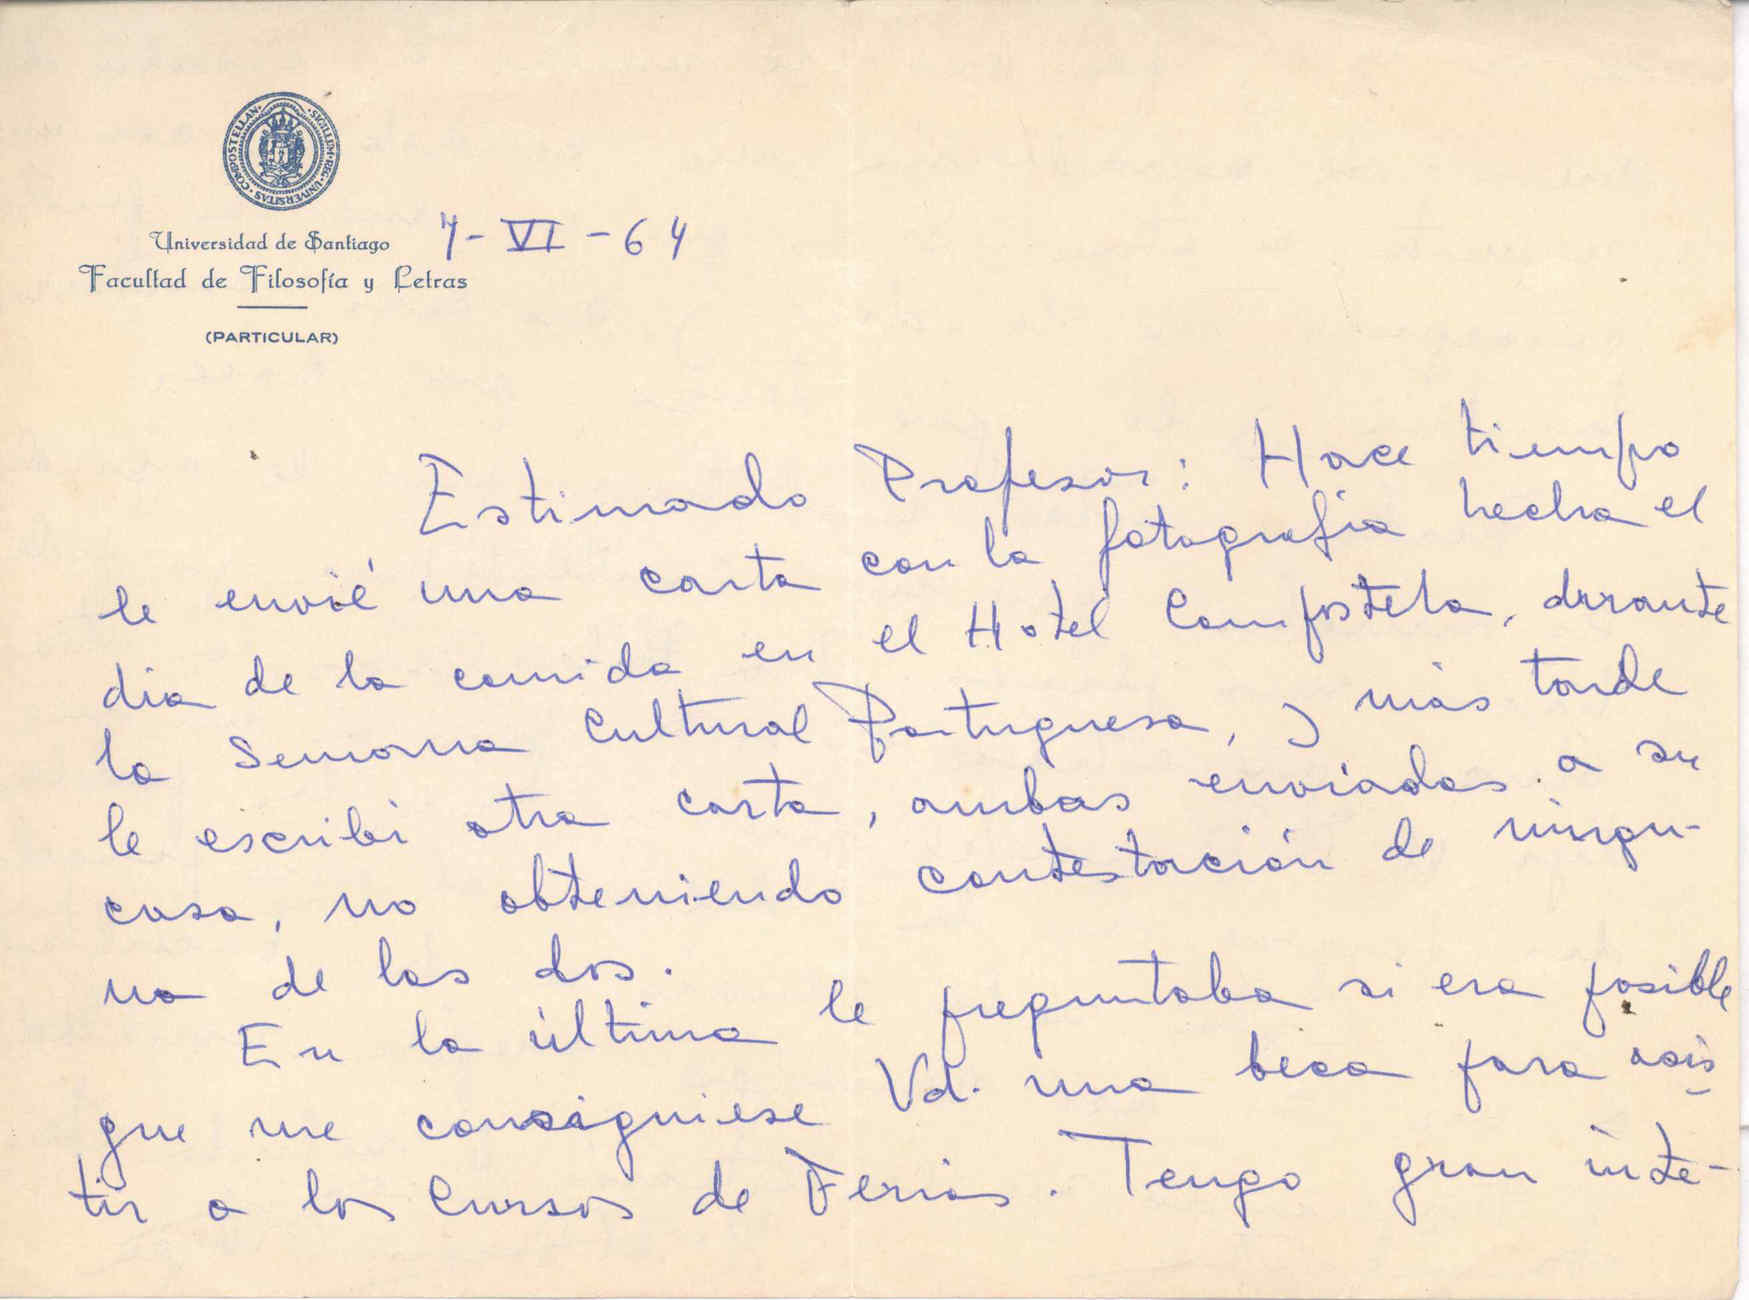 SIGILLUM · REG · UNIVERSITAS · COMPOSTELLAN ·
Universidad de Santiago
7-VI-64
Facultad de Filosofía y Letras
(PARTICULAR)
Estimado Profesor: Hace tiempo
le envié una carta con la fotografía hecha el
dia de la comida en el Hotel Compostela, durante
la Semana Cultural Portuguesa, y más tarde
le escribí otra carta, ambas enviadas a su
casa, no obteniendo contestación de ningu-
na de las dos.
En la última le preguntaba si era posible
que me consiguiese Vd. una beca para asis
tir a los Cursos de Ferias. Tengo gran inte-